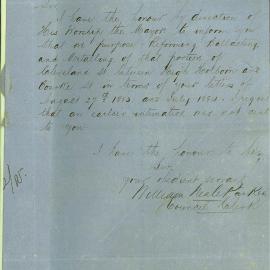 Sir
I have the honour by direction of
His Worship the Mayor to inform you
that on purpose Reforming Ballasting
and Metalling of that portion of
Cleveland St between
Bourke St in terms of your letters of
August 27th and July I regret
that an earlier intimation was not sent
to you
I have the honour to be
Sir
your obedient servant
William Neale
Council Clerk